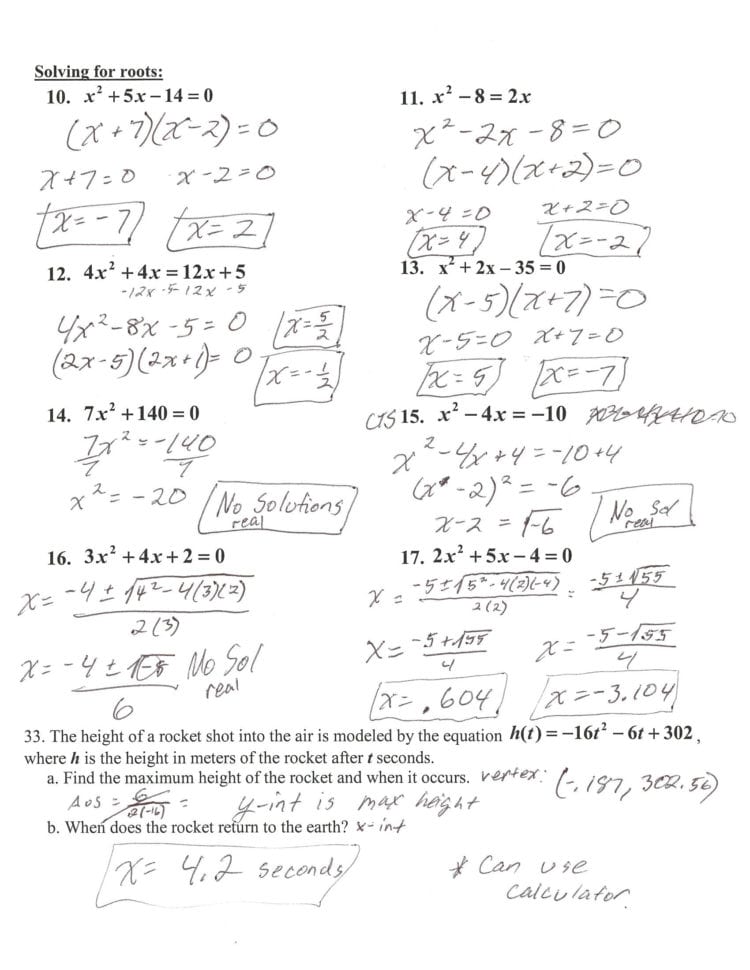 Solving for roots:
10. x² + 5x − 14 = 0
(x + 7)(x − 2) = 0
x + 7 = 0   x − 2 = 0
x = −7   x = 2
11. x² − 8 = 2x
x² − 2x − 8 = 0
(x − 4)(x + 2) = 0
x − 4 = 0   x + 2 = 0
x = 4   x = −2
12. 4x² + 4x = 12x + 5
−12x −5 12x −5
4x² − 8x − 5 = 0   x = 5/2
(2x − 5)(2x + 1) = 0   x = −1/2
13. x² + 2x − 35 = 0
(x − 5)(x + 7) = 0
x − 5 = 0   x + 7 = 0
x = 5   x = −7
14. 7x² + 140 = 0
7x² = −140
7   7
x² = −20   No Solutions
real
CTS 15. x² − 4x = −10
x² − 4x + 4 = −10 + 4
(x − 2)² = −6
x − 2 = √−6   No Sol
real
16. 3x² + 4x + 2 = 0
x = (−4 ± √4² − 4(3)(2)) / 2(3)
x = (−4 ± √−8) / 6   No Sol
real
17. 2x² + 5x − 4 = 0
x = (−5 ± √5² − 4(2)(−4)) / 2(2) = (−5 ± √55) / 4
x = (−5 + √55) / 4   x = (−5 − √55) / 4
x = .604   x = −3.104
33. The height of a rocket shot into the air is modeled by the equation h(t) = −16t² − 6t + 302,
where h is the height in meters of the rocket after t seconds.
a. Find the maximum height of the rocket and when it occurs. vertex: (−.187, 302.56)
AOS = 6 / 2(−16) =   y-int is max height
b. When does the rocket return to the earth? x-int
x = 4.2 seconds
* Can use
calculator.